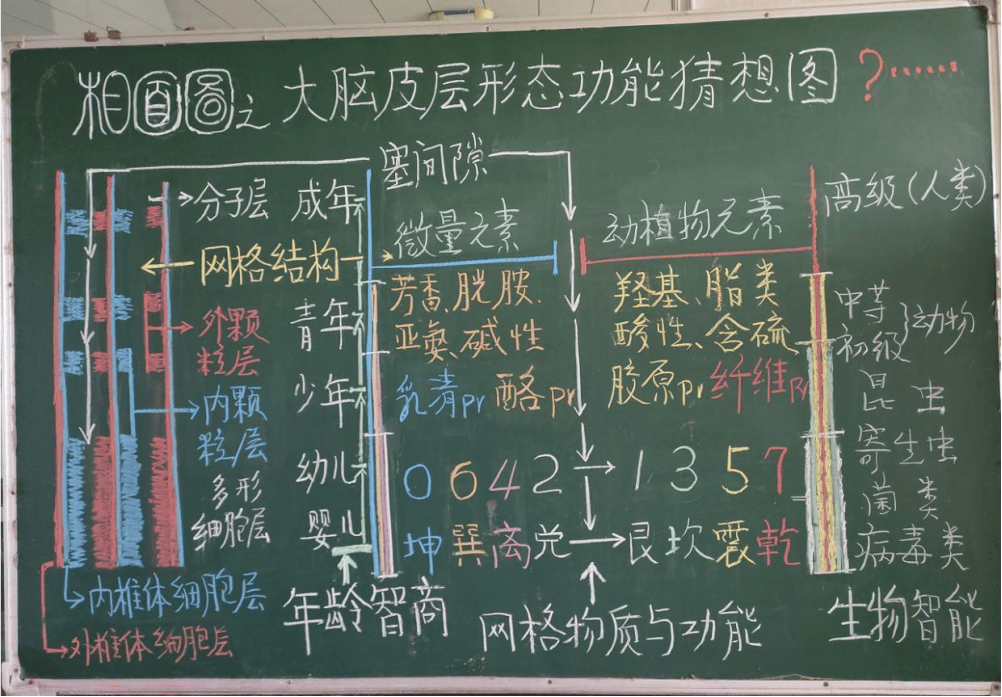 相面圖之大脑皮层形态功能猜想图?……
塞间隙
分子层
网格结构
外颗
粒层
内颗
粒层
多形
细胞层
内椎体细胞层
外椎体细胞层
成年
青年
少年
幼儿
婴儿
年龄智商
微量元素
芳香、胱胺、
亚氨、碱性
乳清pr 酪pr
0 6 4 2
坤 巽 离 兑
动植物元素
羟基、脂类
酸性、含硫
胶原pr 纤维Pr
1 3 5 7
艮 坎 震 乾
网格物质与功能
高级(人类)
中等
初级}动物
昆虫
寄生虫
菌类
病毒类
生物智能